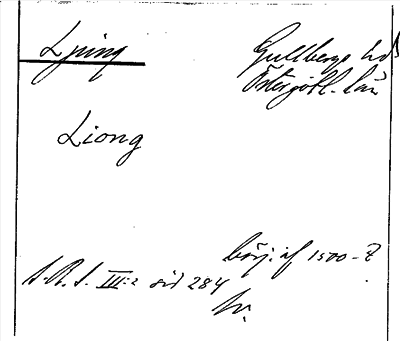 Ljung
Gullbergs hd
Östergötl. län
Liong
börj. af 1500-t.
S.R.S. III:2 sid 284